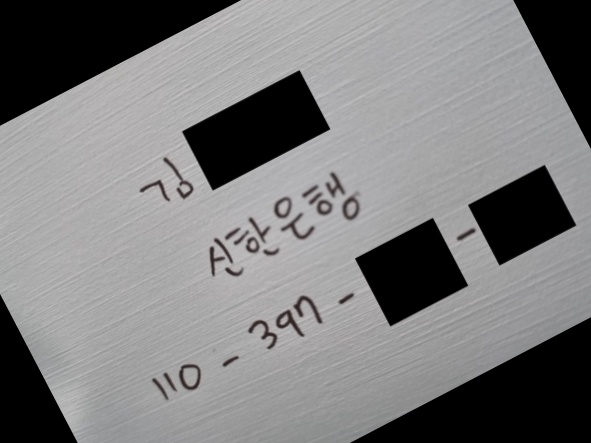 김
신한은행
110-397-  -